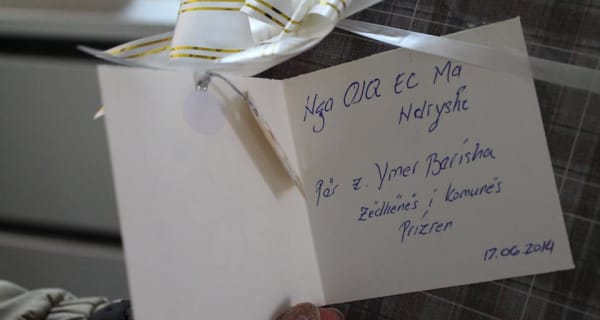 Nga OJQ EC Ma
Ndryshe
Për z. Ymer Barisha
Zëdhënës i Komunës
Prizren
17.06.2014